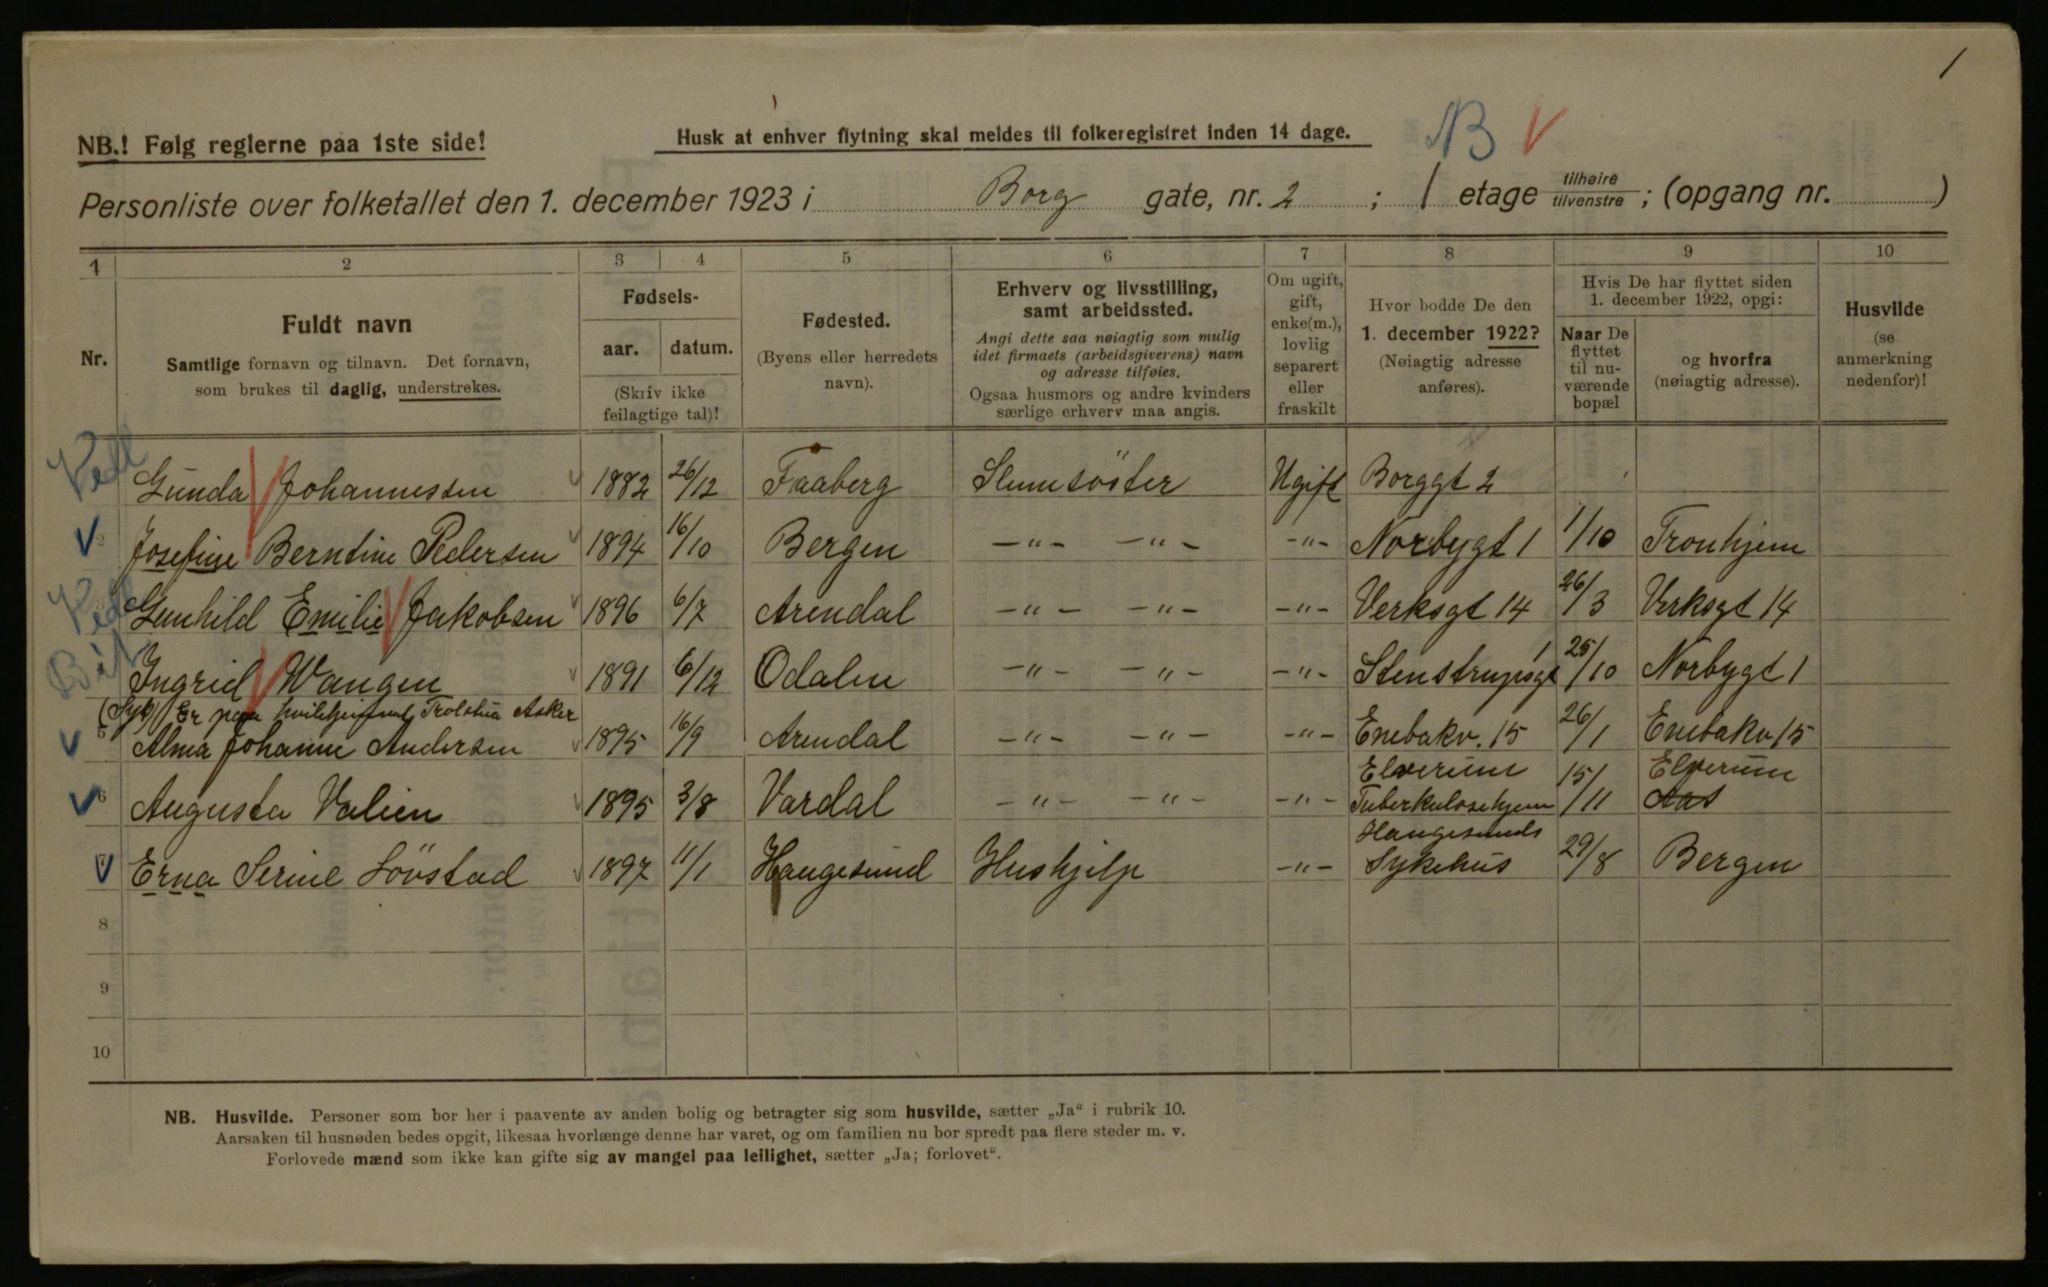 1
NB.! Følg reglerne paa 1ste side!
Husk at enhver flytning skal meldes til folkeregistret inden 14 dage.
NB V
Personliste over folketallet den 1. december 1923 i Borg gate, nr. 2 ; 1 etage tilhøire tilvenstre ; (opgang nr. )
1 2 3 4 5 6 7 8 9 10
Nr.
Fuldt navn
Samtlige fornavn og tilnavn. Det fornavn,
som brukes til daglig, understrekes.
Fødsels-
aar. datum.
(Skriv ikke
feilagtige tal)!
Fødested.
(Byens eller herredets
navn).
Erhverv og livsstilling,
samt arbeidssted.
Angi dette saa nøiagtig som mulig
idet firmaets (arbeidsgiverens) navn
og adresse tilføies.
Ogsaa husmors og andre kvinders
særlige erhverv maa angis.
Om ugift,
gift,
enke(m.),
lovlig
separert
eller
fraskilt
Hvor bodde De den
1. december 1922?
(Nøiagtig adresse
anføres).
Hvis De har flyttet siden
1. december 1922, opgi:
Naar De
flyttet
til nu-
værende
bopæl
og hvorfra
(nøiagtig adresse).
Husvilde
(se
anmerkning
nedenfor)!
Gunda Johannessen 1882 26/12 Faaberg Slumsöster Ugift Borggt 2
2 Josefine Berntine Pedersen 1894 16/10 Bergen -"- -"- -"- Norbygt 1 1/10 Tronhjem
Gunhild Emilie Jakobsen 1896 6/7 Arendal -"- -"- -"- Verksgt 14 26/3 Verksgt 14
Ingrid Wangen 1891 6/12 Odalen -"- -"- -"- Stenstrupsgt 1 25/10 Norbygt 1
(Syk) Er paa hvilehjemmet Asker
5 Alma Johanne Andersen 1895 16/9 Arendal -"- -"- -"- Enebakv. 15 26/1 Enebakv 15
6 Augusta Valien 1895 3/8 Vardal -"- -"- -"- Elverum Tuberkulosehjem 15/11 Elverum
7 Erna Serine Lövstad 1897 11/1 Haugesund Hushjelp -"- Haugesunds Sykehus 29/8 Bergen
8
9
10
NB. Husvilde. Personer som bor her i paavente av anden bolig og betragter sig som husvilde, sætter „Ja" i rubrik 10.
Aarsaken til husnøden bedes opgit, likesaa hvorlænge denne har varet, og om familien nu bor spredt paa flere steder m. v.
Forlovede mænd som ikke kan gifte sig av mangel paa leilighet, sætter „Ja; forlovet".